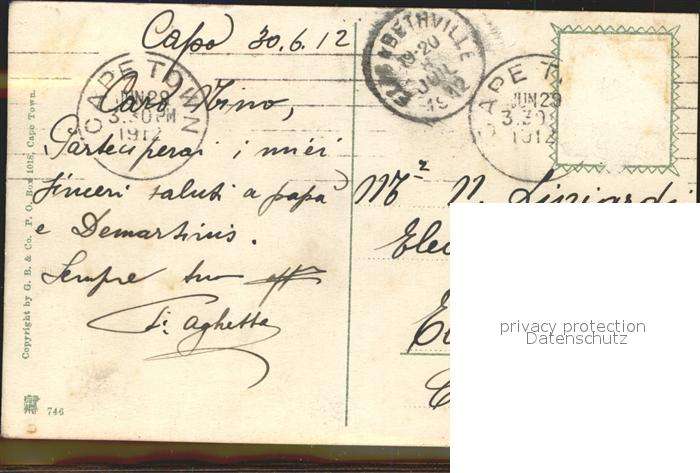 Capo 30.6.12
Caro Nino,
Parteciperai i miei
sinceri saluti a papà
e Demartinis.
Sempre tuo aff
CAPE TOWN
JUN 29
3.30 PM
1912
ELISABETHVILLE
19-20
JUIL
1912
CAPE T
JUN 29
3.30
1912
Mr N.
Elec
Copyright by G. B. & Co. P. O. Box 1018, Cape Town.
746
privacy protection
Datenschutz